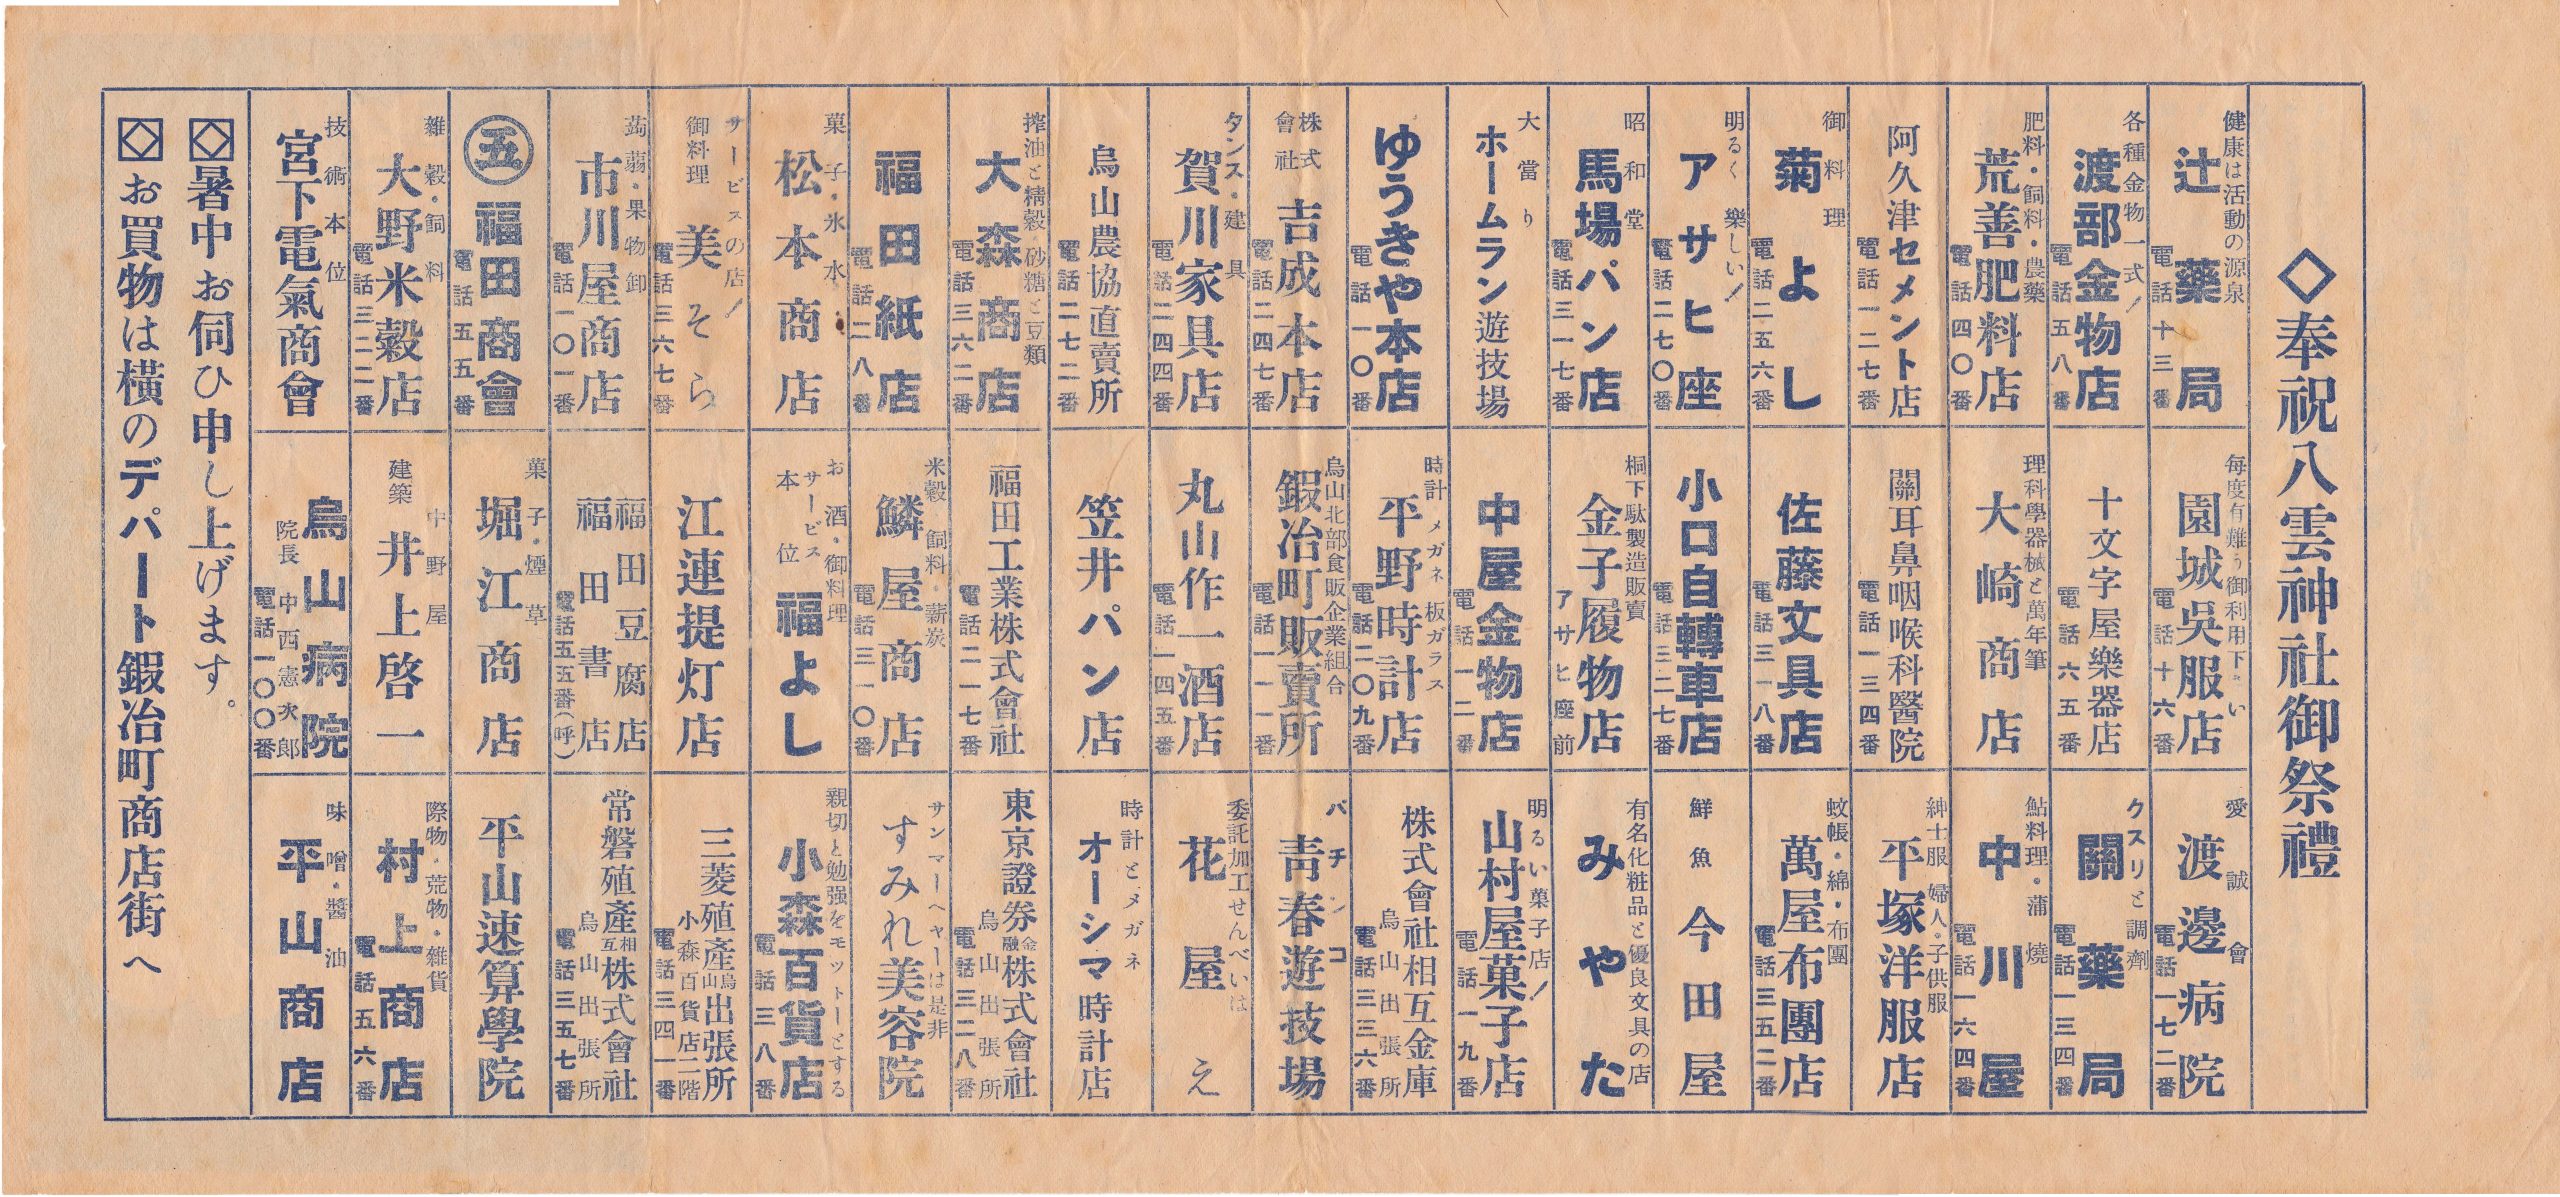 ◇奉祝八雲神社御祭禮
健康は活動の源泉
辻藥局
電話十三番
各種金物一式！
渡部金物店
電話五八番
肥料・飼料・農藥
荒善肥料店
電話四〇番
阿久津セメント店
電話一二七番
御料理
菊よし
電話二五六番
明るく樂しい！
アサヒ座
電話二七〇番
昭和堂
馬場パン店
電話三一七番
大當り
ホームラン遊技場
ゆうきや本店
電話一〇番
株式會社
吉成本店
電話二四七番
タンス・建具
賀川家具店
電話二四四番
烏山農協直賣所
電話二七二番
搾油と精穀 砂糖と豆類
大森商店
電話三六二番
福田紙店
電話二八番
菓子・氷水
松本商店
サービスの店！
御料理 美そら
電話三六七番
蒟蒻・果物卸
市川屋商店
電話一〇一番
五 福田商會
電話五五番
雜穀・飼料
大野米穀店
電話三二二番
技術本位
宮下電氣商會
毎度有難う御利用下さい
園城吳服店
電話十六番
十文字屋樂器店
電話六五番
理科學器械と萬年筆
大崎商店
關耳鼻咽喉科醫院
電話一三四番
佐藤文具店
電話三一八番
小口自轉車店
電話三二七番
桐下駄製造販賣
金子履物店
アサヒ座前
中屋金物店
電話一二番
時計 メガネ 板ガラス
平野時計店
電話二〇九番
烏山北部食販企業組合
鍜冶町販賣所
電話一一一番
丸山作一酒店
電話一四五番
笠井パン店
福田工業株式會社
電話二一七番
米穀 飼料・薪炭
鱗屋商店
電話三一〇番
お酒・御料理
サービス本位 福よし
江連提灯店
福田豆腐店
福田書店
電話五五番(呼)
菓子・煙草
堀江商店
中野屋
建築 井上啓一
烏山病院
院長 中西憲次郎
電話一〇〇番
愛誠會
渡邊病院
電話一七二番
クスリと調劑
關藥局
電話一三四番
鮎料理・蒲燒
中川屋
電話一六四番
紳士服 婦人・子供服
平塚洋服店
蚊帳・綿・布團
萬屋布團店
電話三五二番
鮮魚 今田屋
有名化粧品と優良文具の店
みやた
明るい菓子店！
山村屋菓子店
電話一九番
株式會社相互金庫
烏山出張所
電話三三六番
パチンコ
靑春遊技場
委託加工せんべいは
花屋え
時計とメガネ
オーシマ時計店
東京證券金融株式會社
烏山出張所
電話三二八番
サンマーヘヤーは是非
すみれ美容院
親切と勉强をモットーとする
小森百貨店
電話三八番
三菱殖產烏山出張所
小森百貨店二階
電話三四一番
常磐殖產相互株式會社
烏山出張所
電話三五七番
平山速算學院
際物・荒物・雜貨
村上商店
電話五六番
味噌・醬油
平山商店
◇暑中お伺ひ申し上げます。
◇お買物は橫のデパート鍜冶町商店街へ